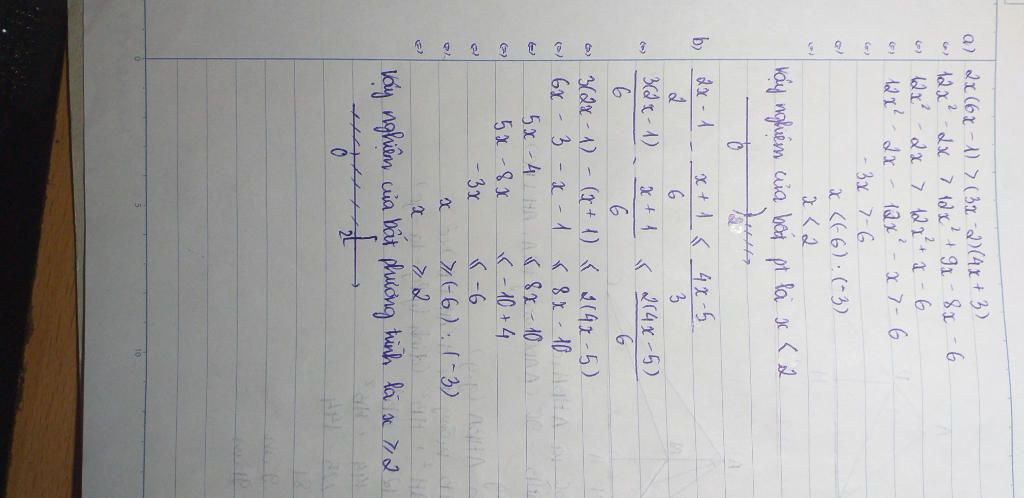 a) 2x(6x-1) > (3x-2)(4x+3)
⇔ 12x² - 2x > 12x² + 9x - 8x - 6
⇔ 12x² - 2x > 12x² + x - 6
⇔ 12x² - 2x - 12x² - x > -6
⇔ -3x > -6
⇔ x < (-6) : (-3)
⇔ x < 2
Vậy nghiệm của bất pt là x < 2
0 2
b) (2x-1)/2 - (x+1)/6 ≤ (4x-5)/3
⇔ 3(2x-1)/6 - (x+1)/6 ≤ 2(4x-5)/6
⇔ 3(2x-1) - (x+1) ≤ 2(4x-5)
⇔ 6x - 3 - x - 1 ≤ 8x - 10
⇔ 5x - 4 ≤ 8x - 10
⇔ 5x - 8x ≤ -10 + 4
⇔ -3x ≤ -6
⇔ x ≥ (-6) : (-3)
⇔ x ≥ 2
Vậy nghiệm của bất phương trình là x ≥ 2
0 2
0 5 10